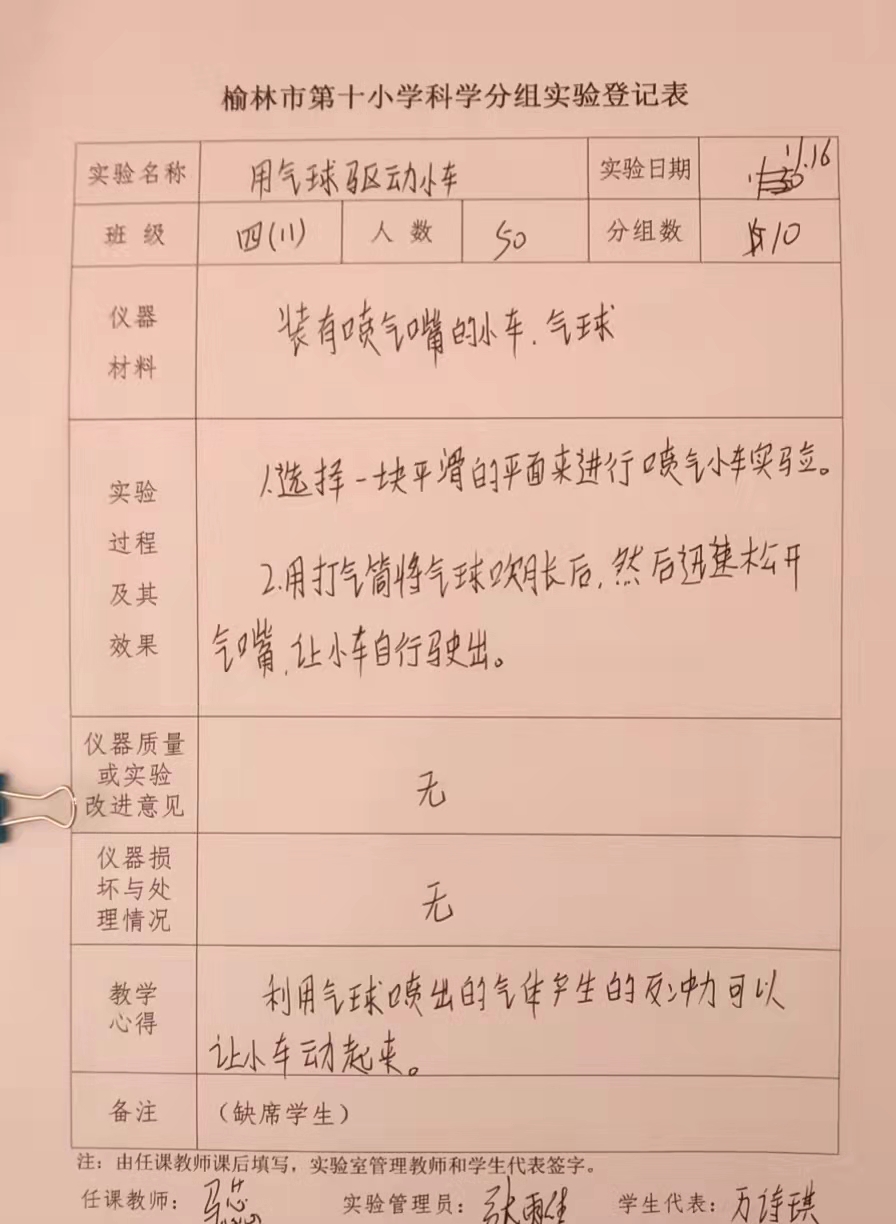 榆林市第十小学科学分组实验登记表
实验名称 用气球驱动小车 实验日期 11.16
班 级 四(11) 人 数 50 分组数 10
仪器
材料
装有喷气嘴的小车.气球
实验
过程
及其
效果
1.选择一块平滑的平面来进行喷气小车实验。
2.用打气筒将气球吹胀后,然后迅速松开
气嘴,让小车自行驶出。
仪器质量
或实验
改进意见
无
仪器损
坏与处
理情况
无
教学
心得
利用气球喷出的气体产生的反冲力可以
让小车动起来。
备注 (缺席学生)
注:由任课教师课后填写,实验室管理教师和学生代表签字。
任课教师: 实验管理员:张雨佳 学生代表:万诗琪